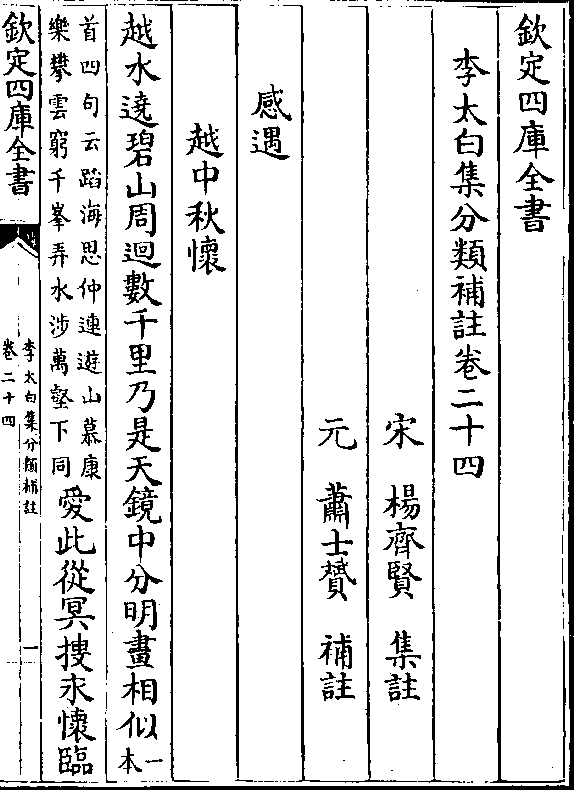 欽定四庫全書
李太白集分類補註卷二十四
宋　楊齊賢　集註
元　蕭士贇　補註
感遇
越中秋懷
越水遶碧山周迴數千里乃是天鏡中分明畫相似一本
首四句云蹈海思仲連遊山慕康
樂攀雲窮千峯弄水涉萬壑下同
愛此從冥搜永懷臨
欽定四庫全書
李太白集分類補註
卷二十四
一